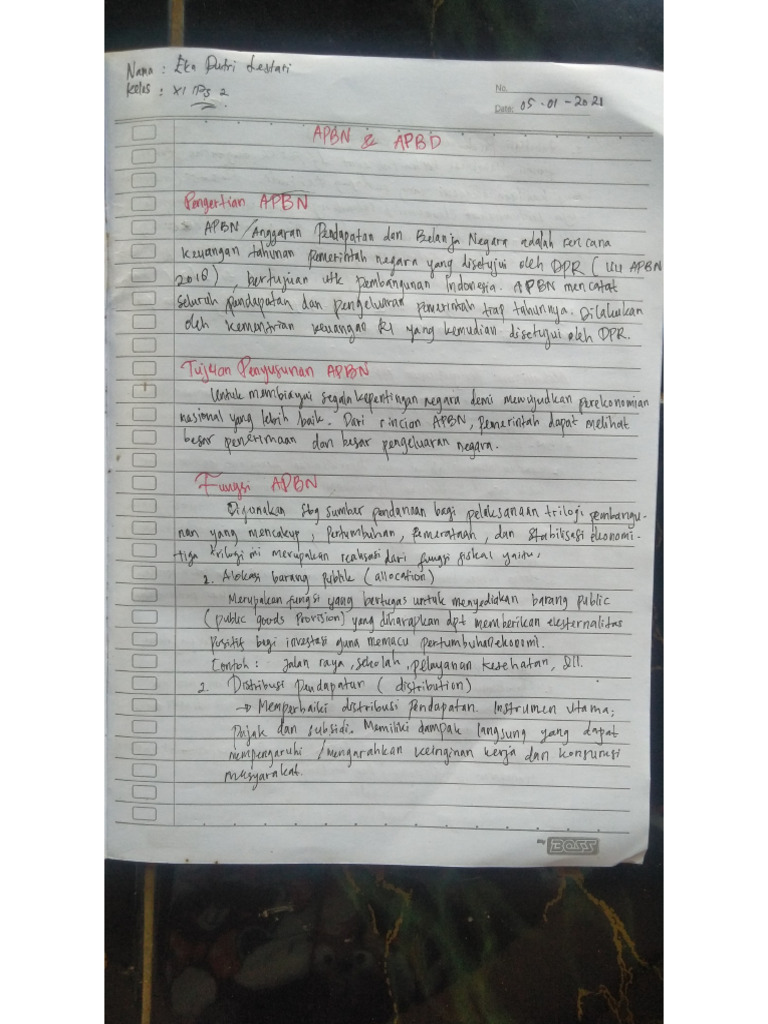 Nama : Eka Putri Lestari
Kelas : XI IPS 2
No.
Date: 05-01-2021
APBN & APBD
Pengertian APBN
APBN/Anggaran Pendapatan dan Belanja Negara adalah rencana
keuangan tahunan pemerintah negara yang disetujui oleh DPR (UU APBN
2018), bertujuan utk pembangunan Indonesia. APBN mencatat
seluruh pendapatan dan pengeluaran pemerintah tiap tahunnya. Dilakukan
oleh kementrian keuangan RI yang kemudian disetujui oleh DPR.
Tujuan Penyusunan APBN
Untuk membiayai segala kepentingan negara demi mewujudkan perekonomian
nasional yang lebih baik. Dari rincian APBN, pemerintah dapat melihat
besar penerimaan dan besar pengeluaran negara.
Fungsi APBN
Digunakan sbg sumber pendanaan bagi pelaksanaan trilogi pembangu-
nan yang mencakup, Pertumbuhan, Pemerataan, dan Stabilisasi ekonomi-
tiga trilogi ini merupakan realisasi dari fungsi fiskal yaitu,
1. Alokasi barang Publik (allocation)
Merupakan fungsi yang bertugas untuk menyediakan barang public
(public goods provision) yang diharapkan dpt memberikan eksternalitas
positif bagi investasi guna memacu pertumbuhan ekonomi.
Contoh : Jalan raya, sekolah, pelayanan kesehatan, dll.
2. Distribusi Pendapatan (distribution)
→ Memperbaiki distribusi Pendapatan. Instrumen utama;
Pajak dan subsidi. Memiliki dampak langsung yang dapat
mempengaruhi/mengarahkan keinginan kerja dan konsumsi
masyarakat.
my BOSS